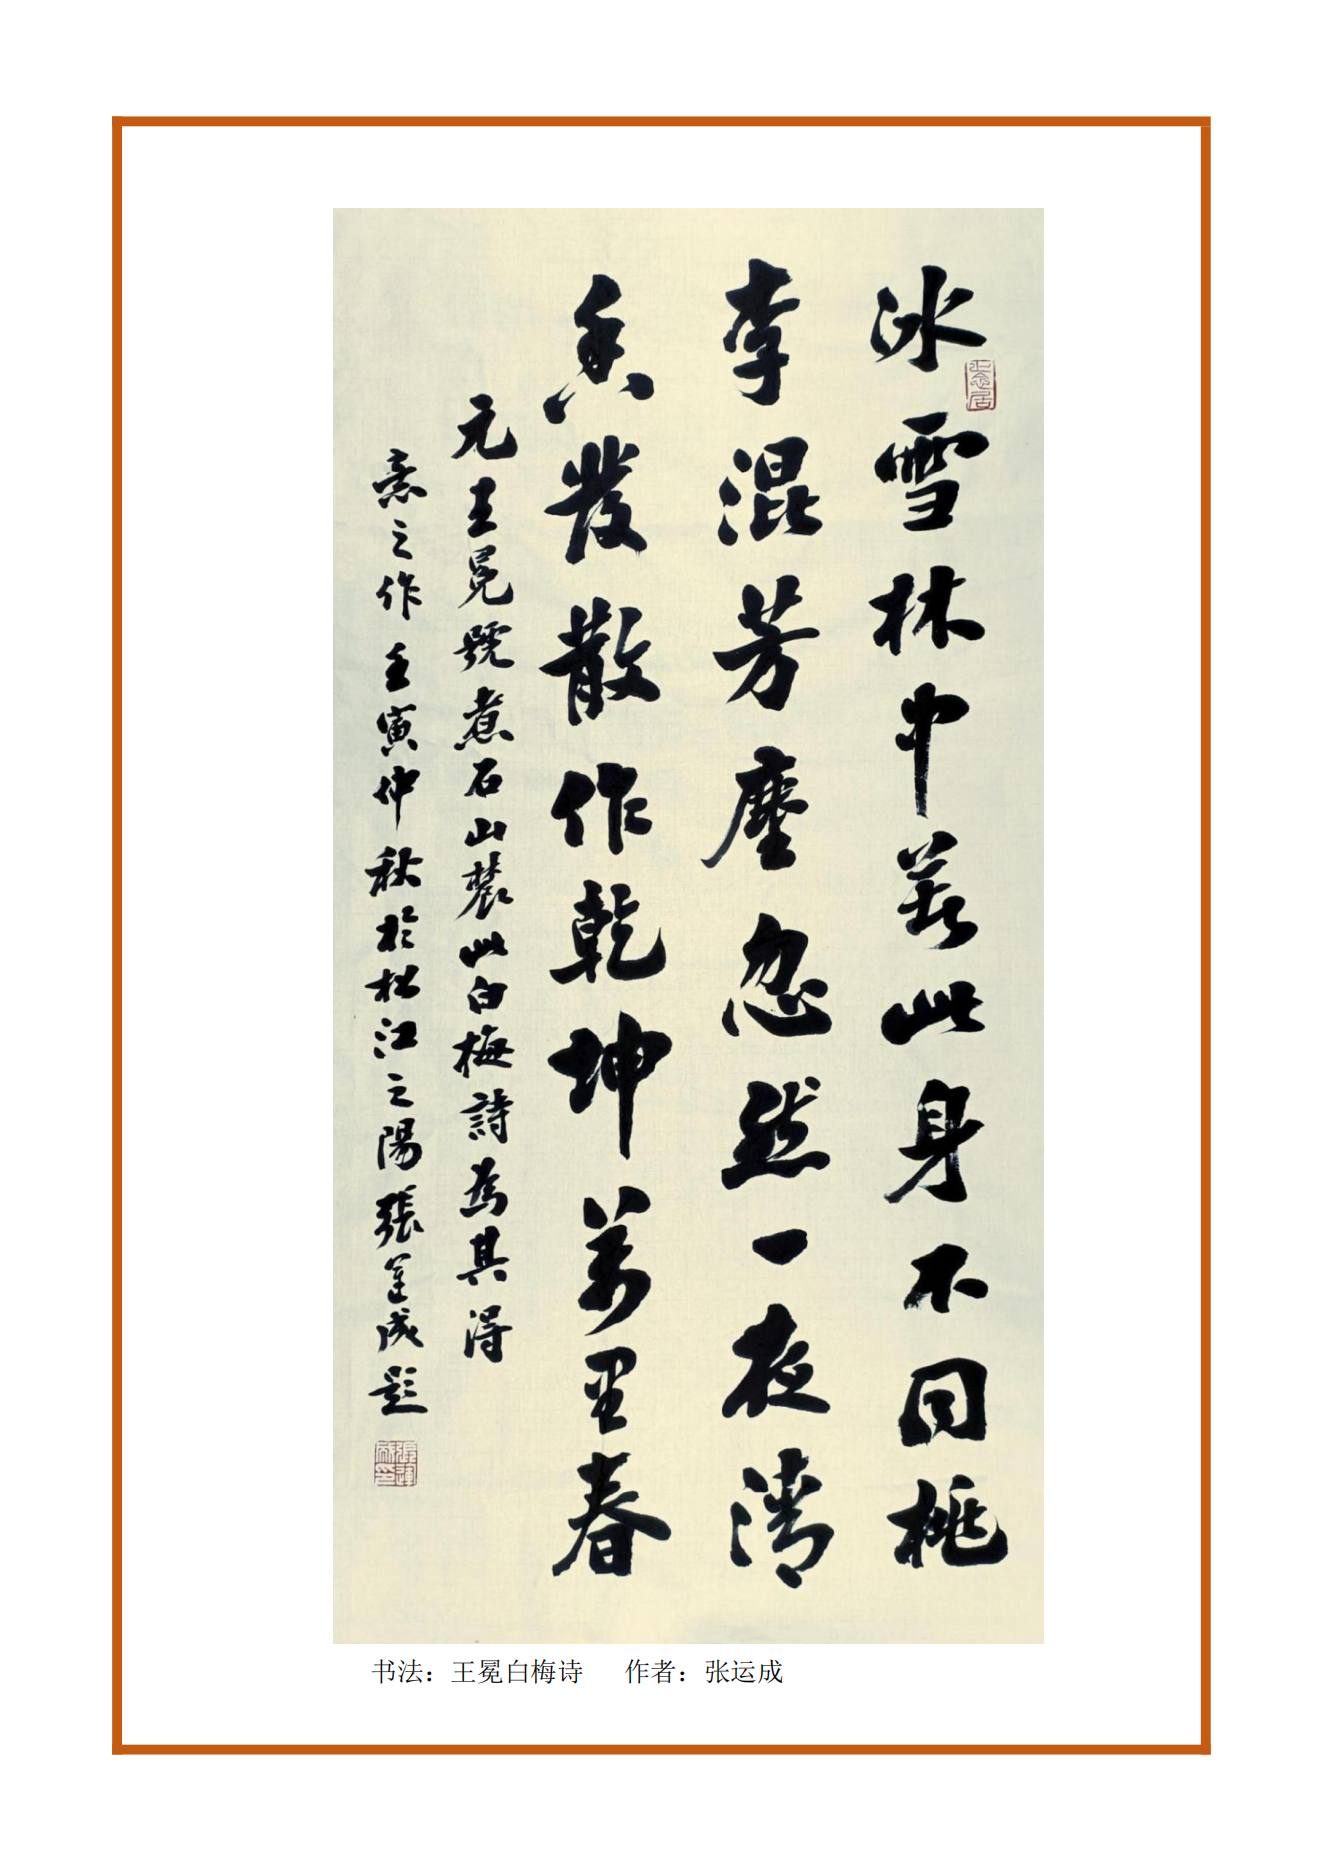 冰雪林中著此身不同桃
李混芳塵忽然一夜清
香發散作乾坤萬里春
元王冕號煮石山農此白梅詩為其得
意之作壬寅仲秋於松江之陽張運成題
书法：王冕白梅诗 作者：张运成